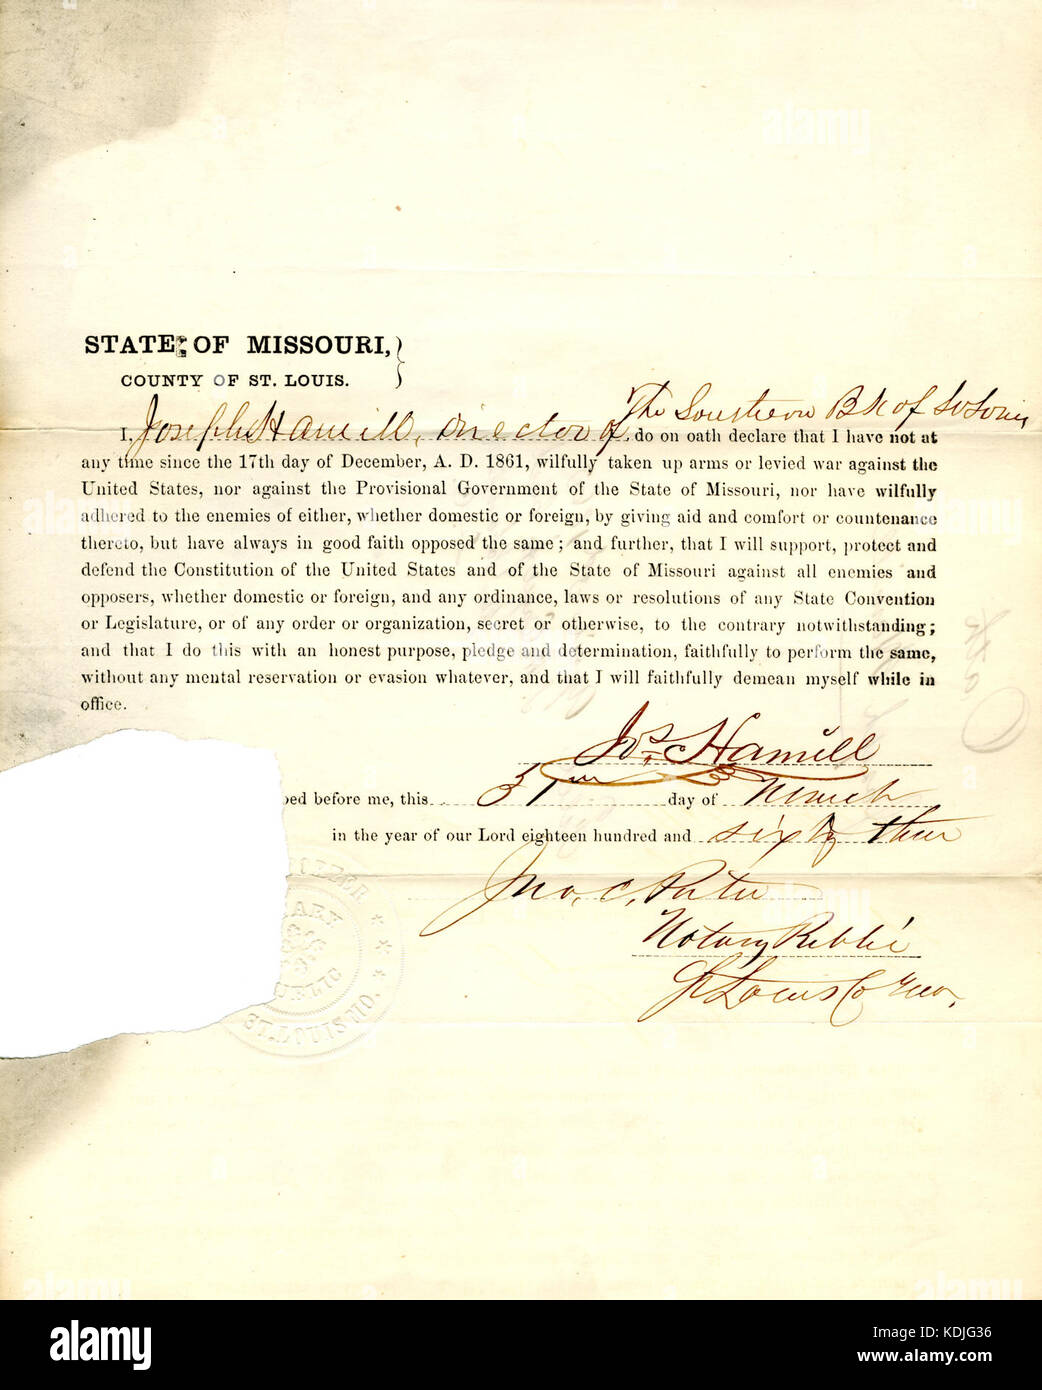 STATE OF MISSOURI,
COUNTY OF ST. LOUIS.
The Southern Bk of St Louis
I, Joseph Hamill, Director of, do on oath declare that I have not at
any time since the 17th day of December, A. D. 1861, wilfully taken up arms or levied war against the
United States, nor against the Provisional Government of the State of Missouri, nor have wilfully
adhered to the enemies of either, whether domestic or foreign, by giving aid and comfort or countenance
thereto, but have always in good faith opposed the same; and further, that I will support, protect and
defend the Constitution of the United States and of the State of Missouri against all enemies and
opposers, whether domestic or foreign, and any ordinance, laws or resolutions of any State Convention
or Legislature, or of any order or organization, secret or otherwise, to the contrary notwithstanding;
and that I do this with an honest purpose, pledge and determination, faithfully to perform the same,
without any mental reservation or evasion whatever, and that I will faithfully demean myself while in
office.
Jos. Hamill
bed before me, this 31 day of March
in the year of our Lord eighteen hundred and sixty three
Jno. C.
Notary Public
St Louis Co Mo.
NOTARY
PUBLIC
ST. LOUIS MO.
alamy
Image ID: KDJG36
www.alamy.com